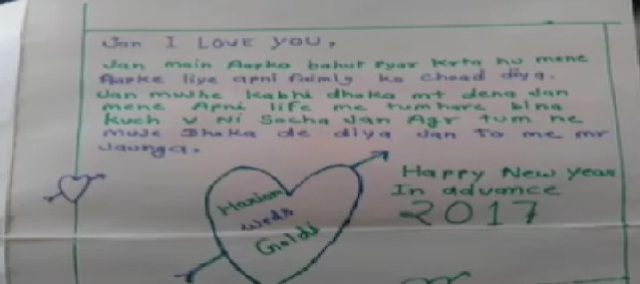 Jan I LOVE YOU,
Jan main Aapka bahut Pyar krta hu mene
Aapke liye apni faimly ko choad diya.
Jan mujhe kabhi dhoka mt dena Jan
mene Apni life me tumhare bina
kuch v Ni Socha Jan Agr tum ne
muje Dhoka de diya Jan to me mr
Jaunga.
Happy New year
In advance
2017
weds
Goldi